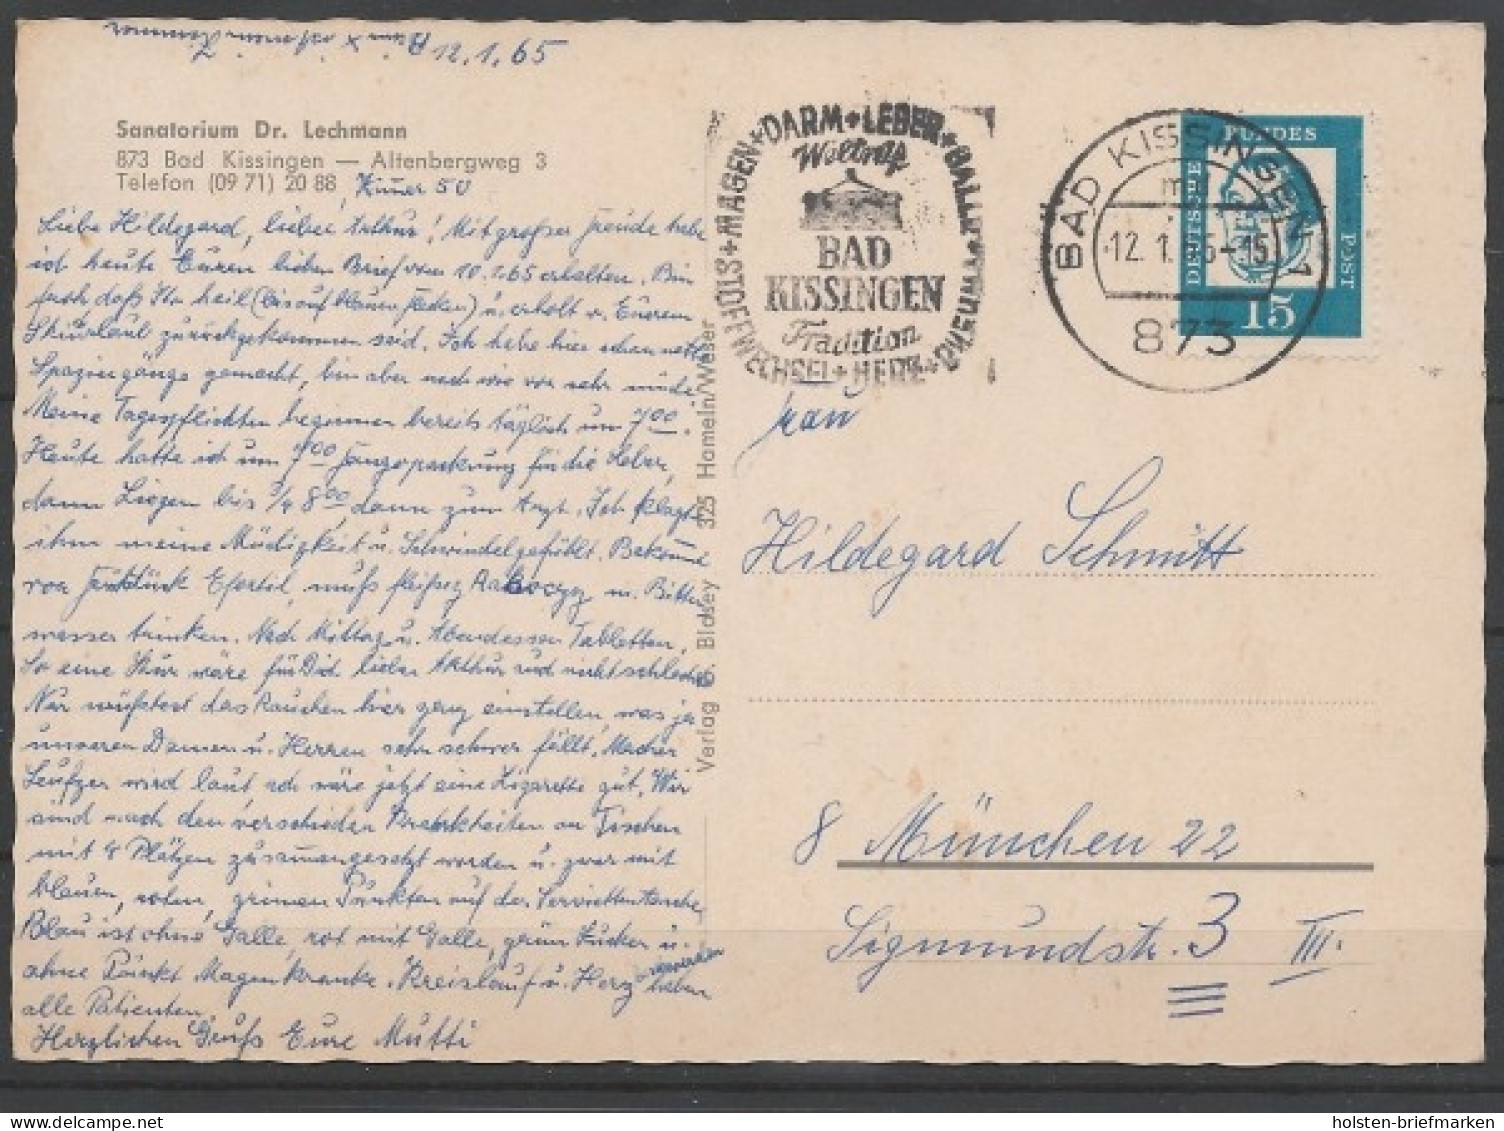 12.1.65
Sanatorium Dr. Lechmann
873 Bad Kissingen — Altenbergweg 3
Telefon (09 71) 20 88, Zimer 50
Liebe Hildegard, lieber Arthur! Mit großer Freude habe
ich heute Euren lieben Brief vom 10.1.65 erhalten. Bin
froh, daß Ihr heil (bis auf blauen Flecken) u. erholt v. Eurem
Skiurlaub zurückgekommen seid. Ich habe hier schon nette
Spaziergänge gemacht, bin aber nach wie vor sehr müde.
Meine Tagespflichten beginnen bereits täglich um 700.
Heute hatte ich um 700 Fangopackung für die Leber,
dann Liegen bis 3/4 800, dann zum Arzt. Ich klagte
ihm meine Müdigkeit u. Schwindelgefühl. Bekomme
vor Frühstück Efortil, muß fleißig Rakoczy u. Bitter
wasser trinken. Nach Mittag u. Abendessen Tabletten.
So eine Kur wäre für Dich lieber Arthur auch nicht schlecht.
Nur müßtest das Rauchen hier ganz einstellen, was ja
unseren Damen u. Herren sehr schwer fällt. Mancher
Seufzer wird laut ach wäre jetzt eine Zigarette gut. Wir
sind nach den verschieden Krankheiten an Tischen
mit 8 Plätzen zusammengesetzt worden u. zwar mit
blauen, roten, grünen Punkten auf der Serviettentasche
Blau ist ohne Galle, rot mit Galle, grün Zucker u.
ohne Punkt Magenkranke. Kreislauf u. Herz haben
alle Patienten.
Herzlichen Gruß Eure Mutti
Verlag G. Blasey 325 Hameln/Weser
STOFFWECHSEL + MAGEN + DARM + LEBER + GALLE + RHEUMA + HERZ +
Weltruf
BAD
KISSINGEN
Tradition
BAD KISSINGEN 1
12. 1. 65-15
873
DEUTSCHE BUNDESPOST
15
Frau
Hildegard Schmitt
8 München 22
Sigmundstr. 3 III.
holsten-briefmarken